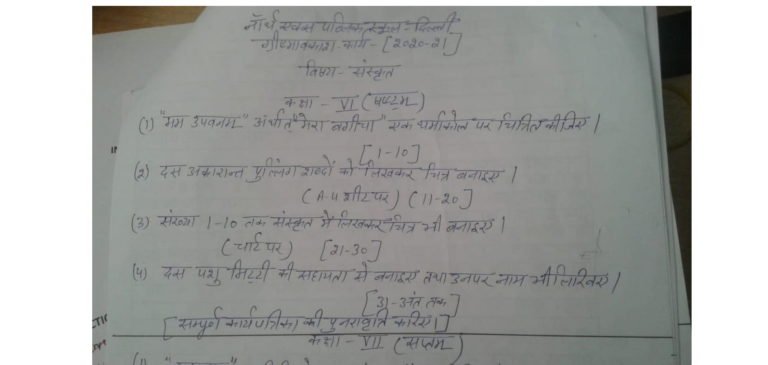 नॉर्थ एक्स पब्लिक स्कूल - दिल्ली
ग्रीष्मावकाश कार्य - [2020-21]
विषय - संस्कृत
कक्षा - VI (षष्टम)
(1) "मम उपवनम" अर्थात् "मेरा बगीचा" एक थर्माकोल पर चित्रित कीजिए।
[1-10]
(2) दस अकारान्त पुल्लिंग शब्दों को लिखकर चित्र बनाइए।
(A-4 शीट पर) (11-20]
(3) संख्या 1-10 तक संस्कृत में लिखकर चित्र भी बनाइए।
(चार्ट पर) [21-30]
(4) दस पशु मिट्टी की सहायता से बनाइए तथा उनपर नाम भी लिखिए।
[31-अंत तक]
[सम्पूर्ण कार्यपत्रिका की पुनरावृति करिए।]
कक्षा - VII (सप्तम)